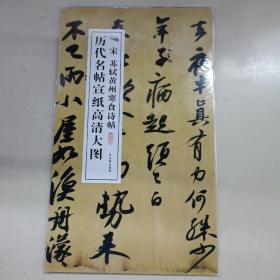 去夜半真有力何殊少
年子病起須已白
宋 苏轼黄州寒食诗帖
历代名帖宣纸高清大图
勢来
不已雨小屋如漁舟濛